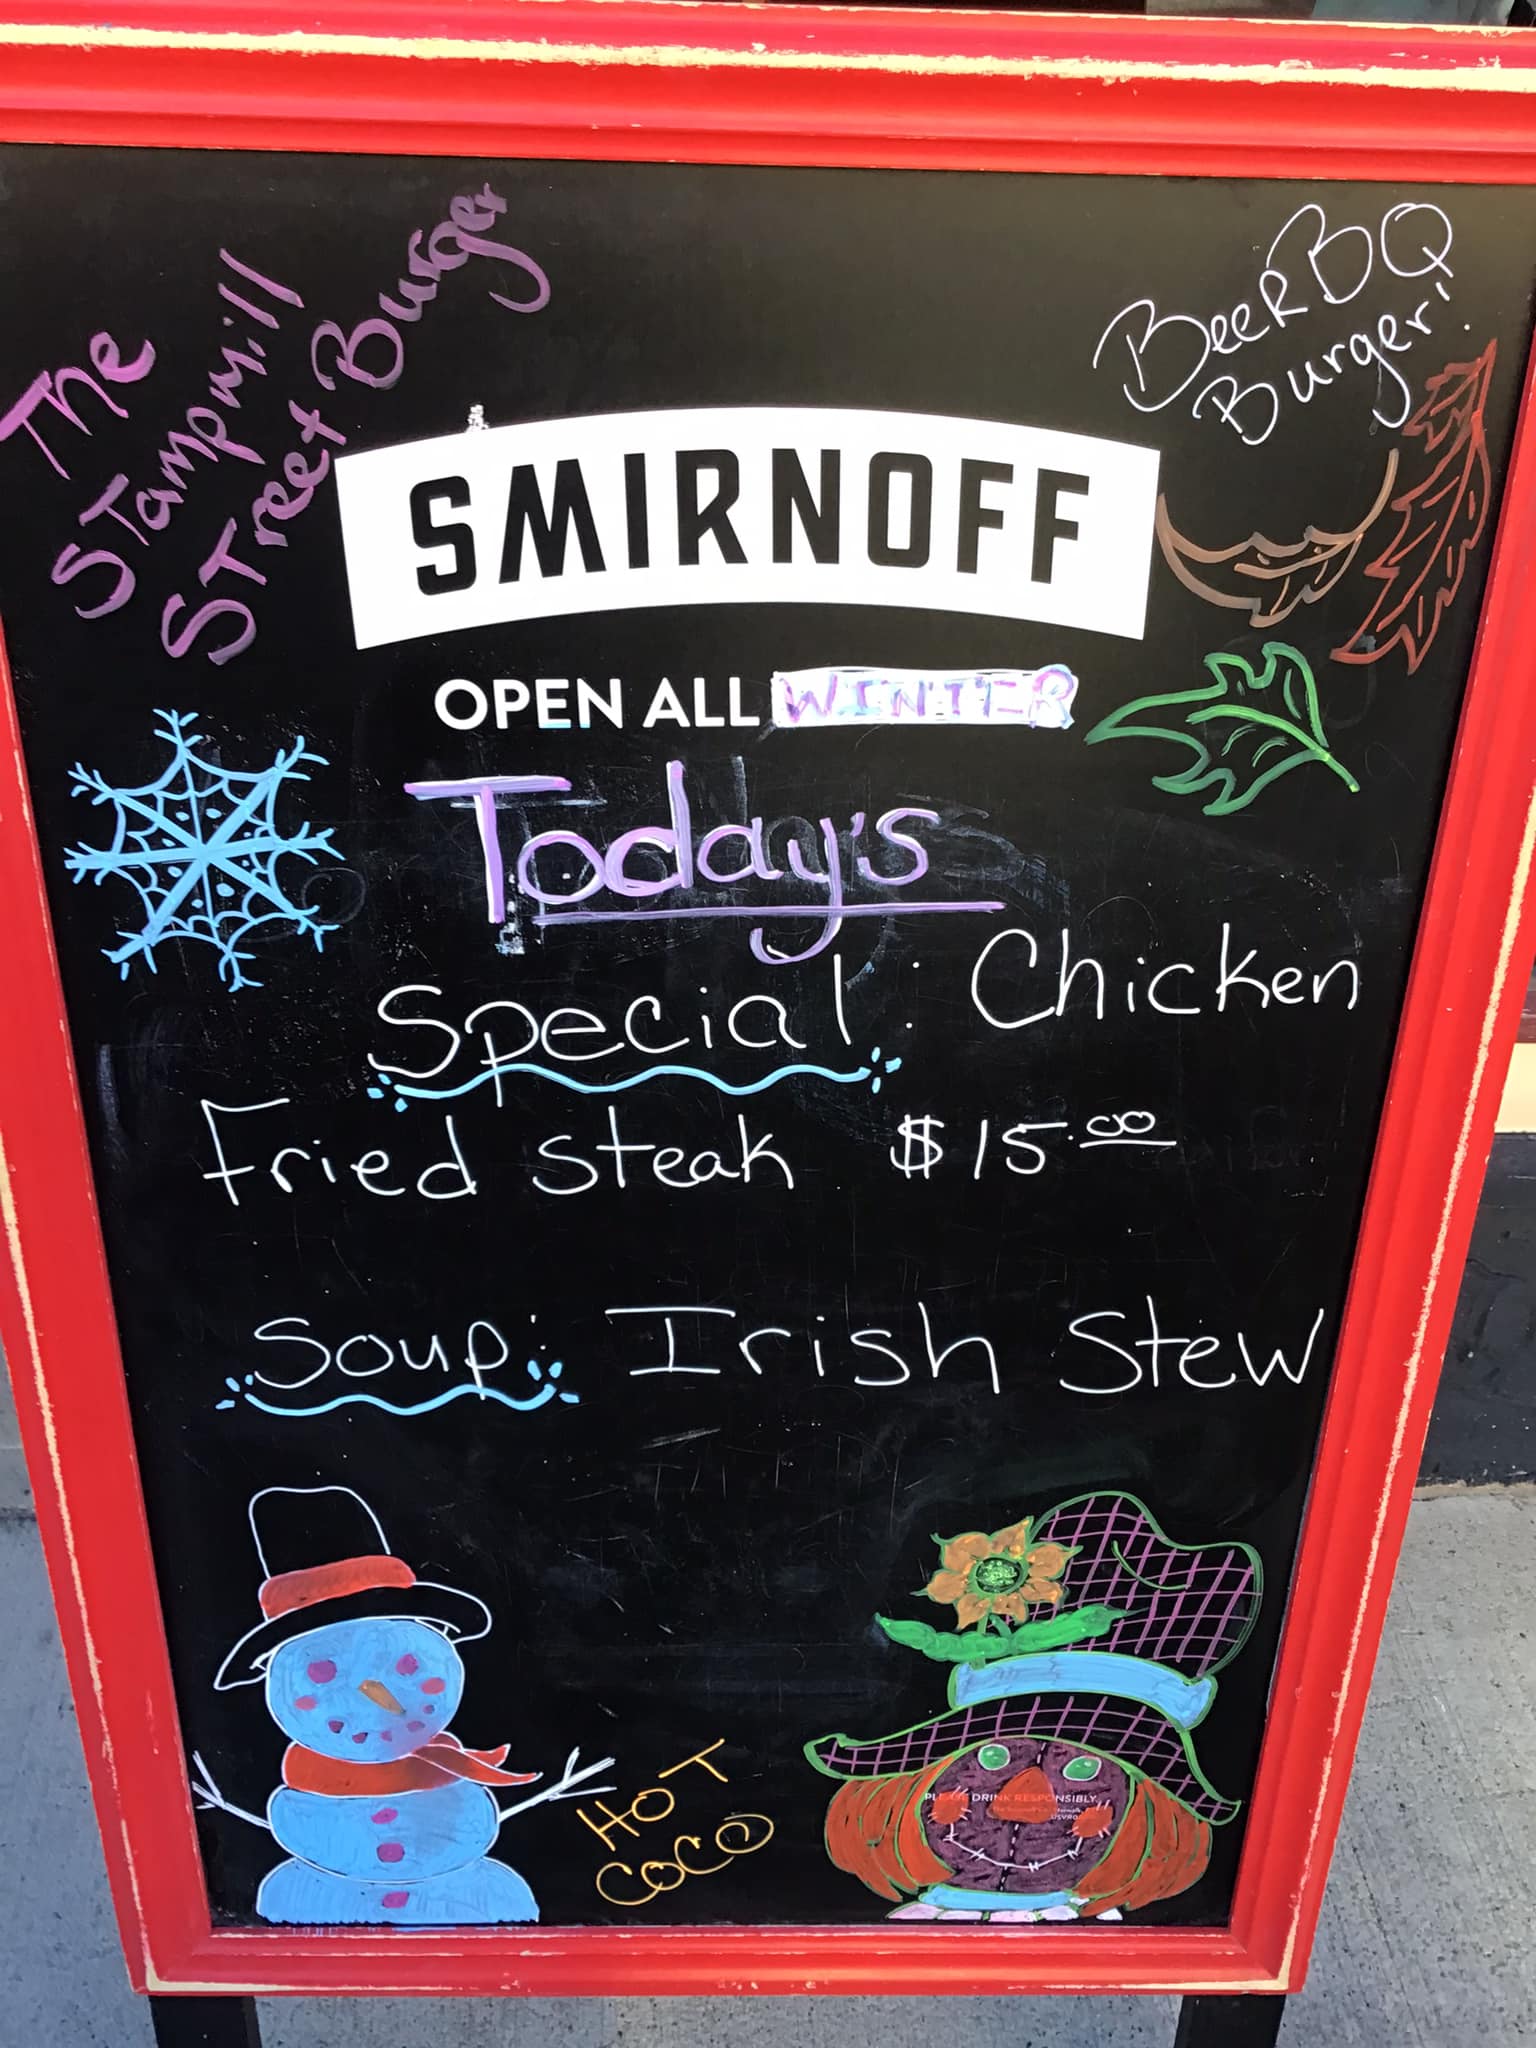 The
Stampmill
Street Burger
BeeRBQ
Burger!
SMIRNOFF
OPEN ALL WINTER
Today's
Special: Chicken
Fried Steak $15.00
Soup: Irish Stew
HOT
COCO
DRINK RESPONSIBLY.